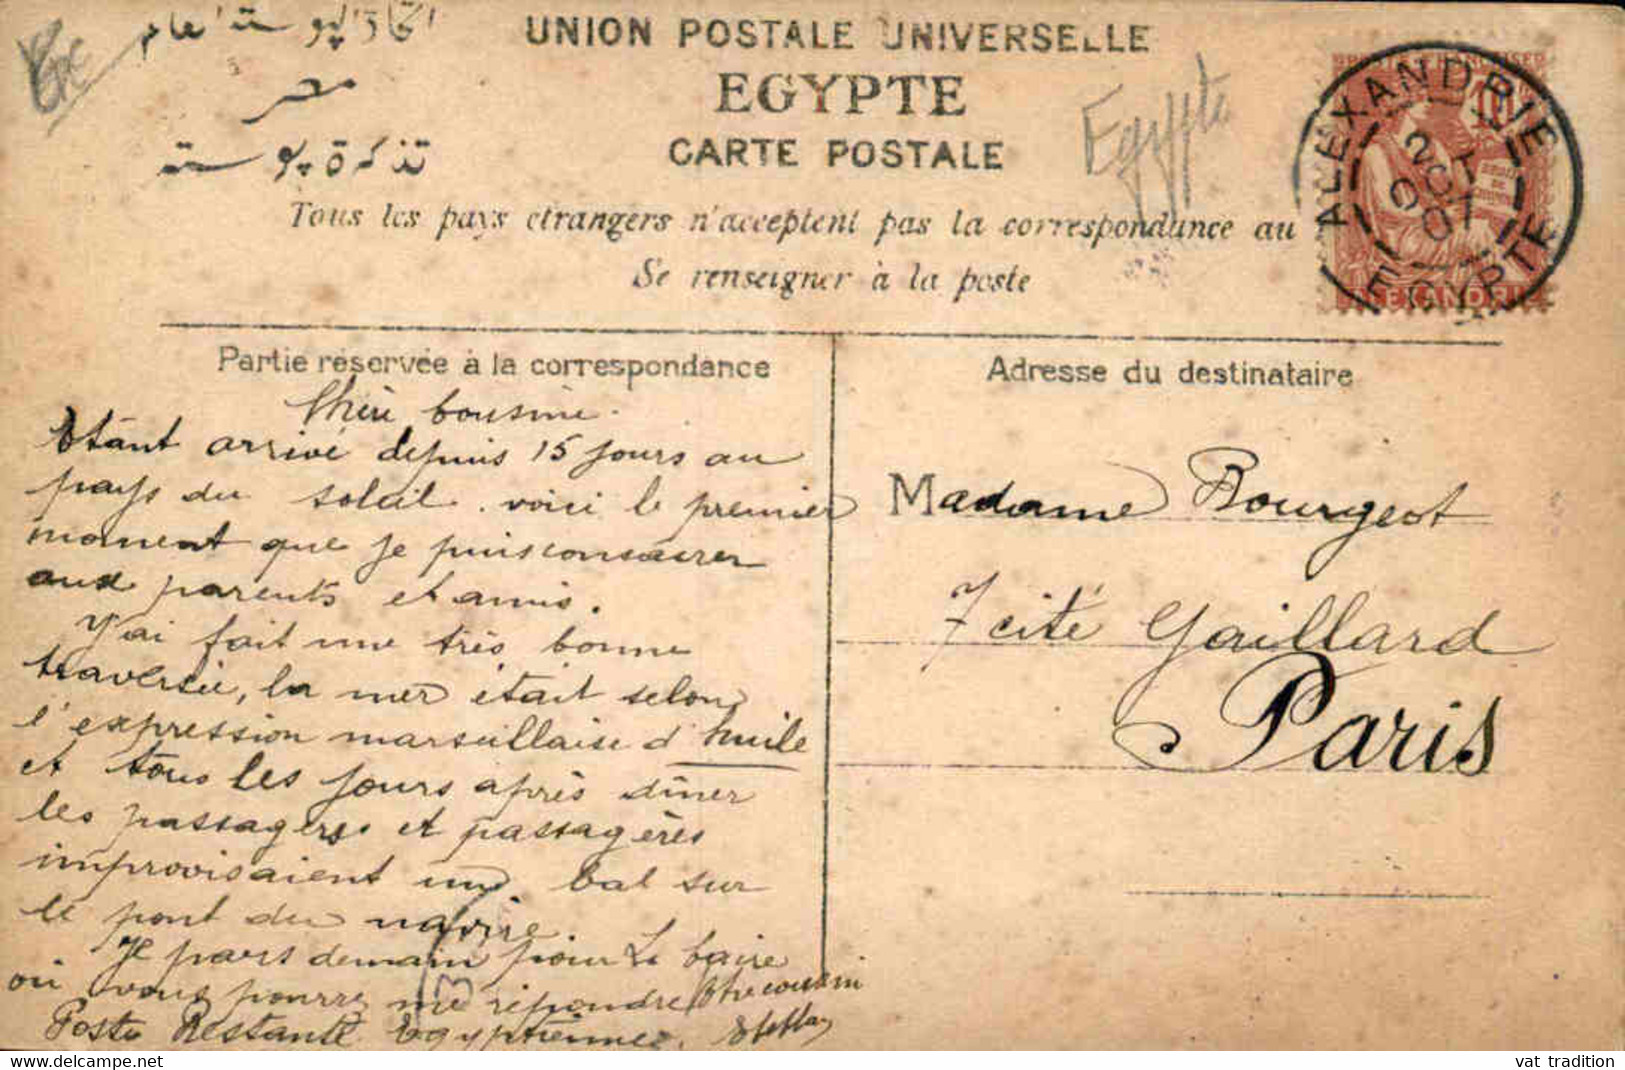 اتحاد البوستة العام
UNION POSTALE UNIVERSELLE
مصر
EGYPTE
Egypte
تذكرة بوستة
CARTE POSTALE
Tous les pays étrangers n'acceptent pas la correspondance au
Se renseigner à la poste
POSTE FRANÇAISE
10
ALEXANDRIE
ALEXANDRIE
2 OCT 07
EGYPTE
Partie réservée à la correspondance
Chère cousine.
Etant arrivé depuis 15 jours au
pays du soleil. voici le premier
moment que je puis consacrer
aux parents et amis.
J'ai fait une très bonne
traversée, la mer était selon
l'expression marseillaise d'huile
et tous les jours après diner
les passagers et passagères
improvisaient un bal sur
le pont du navire.
Je pars demain pour Le Caire
où vous pourrez me répondre
Poste Restante Egyptienne.
Votre cousin
Adresse du destinataire
Madame Bourgeot
7 cité Gaillard
Paris
www.delcampe.net
vat_tradition